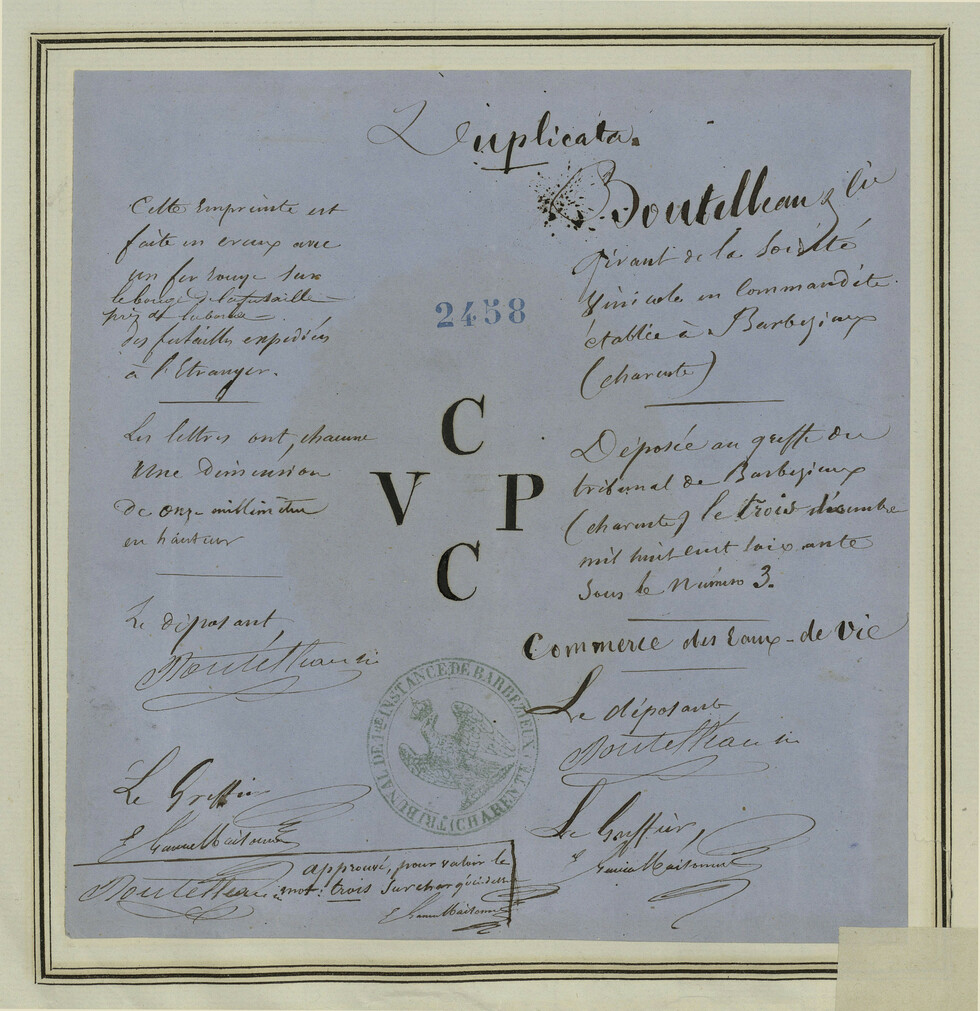 Duplicata.
Cette Empreinte est
faite en creux avec
un fer rouge sur
le bouge de la futaille
près de la bonde
des futailles expédiées
à l'Etranger.
Les lettres ont, chacune
Une dimension
de onze millimètres
en hauteur
Le déposant,
Boutelleau
Le Greffier
2458
C
V P
C
TRIBUNAL DE 1ERE INSTANCE DE BARBEZIEUX (CHARENTE)
Boutelleau & Cie
Gérant de la Société
Vinicole en Commandite
établie à Barbezieux
(charente)
Déposée au greffe du
tribunal de Barbezieux
(charente) le trois décembre
mil huit cent soixante
sous le numéro 3.
Commerce des Eaux-de-Vie
Le déposant
Boutelleau
Le Greffier,
Boutelleau
approuvé, pour valoir le
mot: trois surchargé